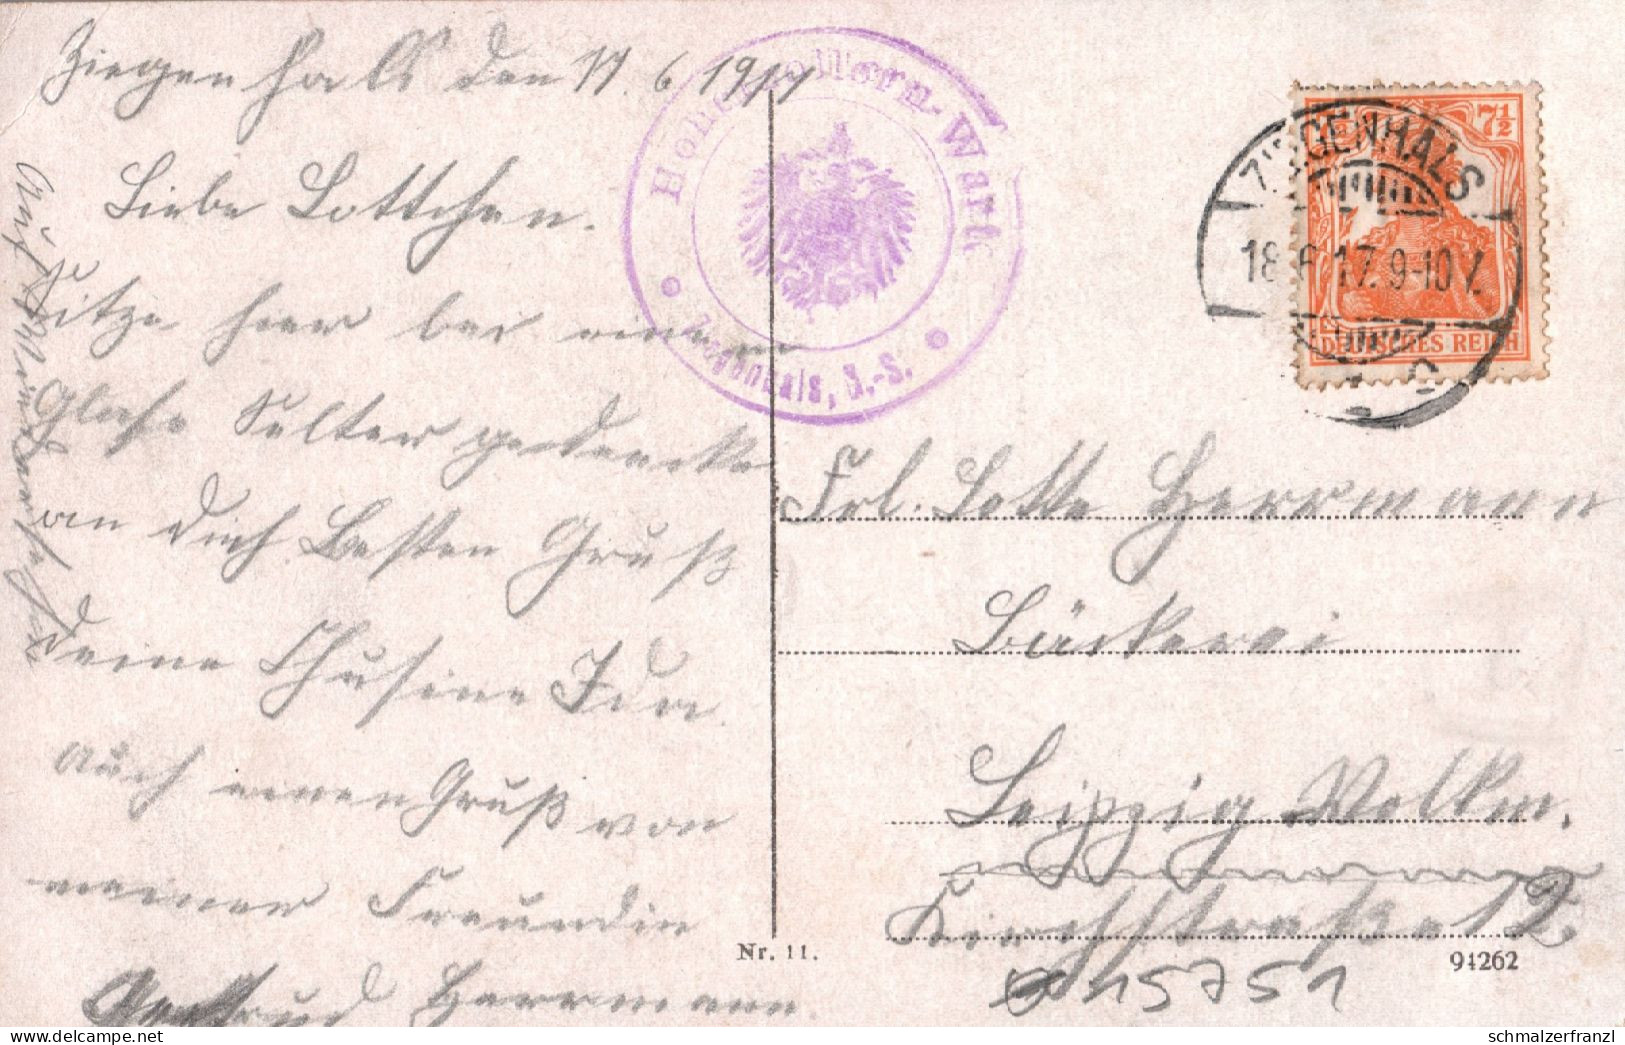 Ziegenhals den 17.6.1917
Liebe Lottchen.
Sitze hier bei einem
Glase Selter gedencke
an Dich Besten Gruß
Deine Chusine Ida
Auch einen Gruß von
meiner Freundin
Gertrud Herrmann.
Auf
Hohenzollern-Wark
Ziegenhals, O.-S.
7½
DEUTSCHES REICH
ZIEGENHALS
18.6.17. 9-10 V.
Frl. Lotte Herrmann
Bäckerei
Leipzig Volkm.
Kirchstraße 12
15751
Nr. 11.
94262
schmalzerfranzl